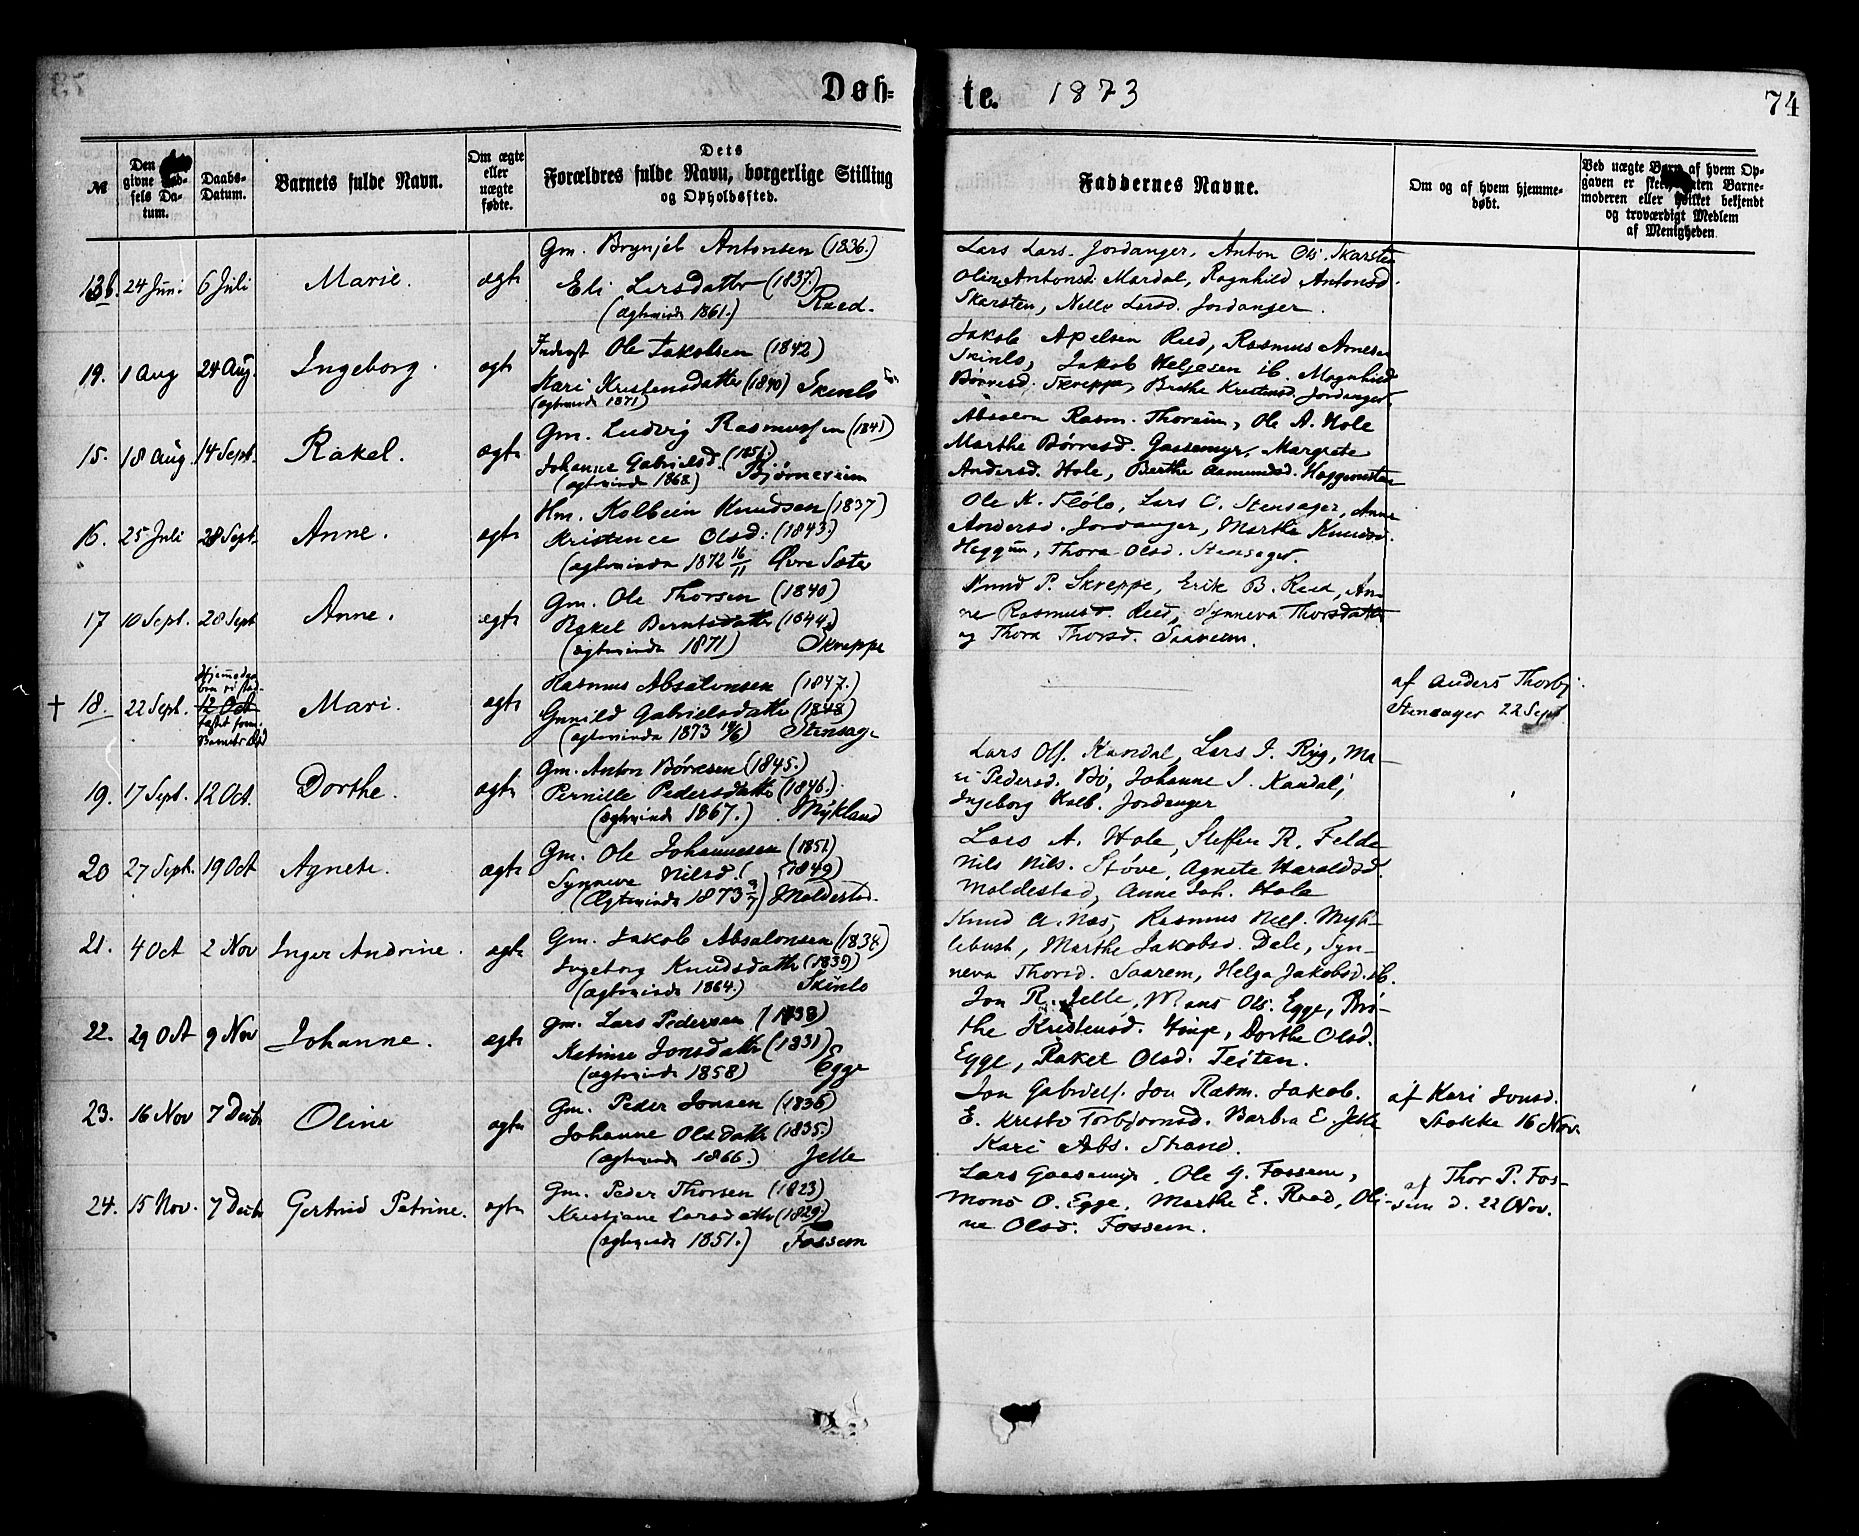 Døb-
te. 1873
74
№
Den
givne Fød-
sels Da-
tum.
Daabs-
Datum.
Barnets fulde Navn.
Om ægte
eller
uægte
fødte.
Dets
Forældres fulde Navn, borgerlige Stilling
og Opholdssted.
Faddernes Navne.
Om og af hvem hjemme-
døbt.
Ved uægte Barn af hvem Op-
gaven er skeet, enten Barne-
moderen eller hvilket bekjendt
og troværdigt Medlem
af Menigheden.
13b. 24 Juni 6 Juli Marie. ægte
Gm. Brynjel Antonsen (1836.)
Eli Larsdatter (1837.)
(ægteviede 1861.) Raed.
Lars Lars. Jordanger, Anton Ols. Skarsten
Oline Antonsd. Mardal, Ragnhild Antonsd.
Skarsten, Nelle Larsd. Jordanger.
19. 1 Aug 24 Aug. Ingeborg. ægte
Inderst Ole Jakobsen (1842)
Kari Kristensdatter (1840) Skinlo
(ægteviede 1871)
Jakob Apelsen Reed, Rasmus Arnesen
Skinlo, Jakob Helgesen ib. Magnhild
Børresd. Skreppe, Brithe Kristensd. Jordanger.
15. 18 Aug. 14 Sept. Rakel. ægte
Gm. Ludvig Rasmussen (1841)
Johanne Gabrielsd. (1851.)
(ægteviede 1868) Bjørnereim
Absalon Rasm. Thoreim, Ole A. Hole
Marthe Børresd. Gaasemyr, Margrete
Andersd. Hole, Berthe Asmundsd.
16. 25 Juli 28 Sept. Anne. ægte
Hm. Kolbein Knudsen (1837)
Kristence Olsd: (1843.)
(ægteviede 1872 16/11 Øvre Sæter
Ole K. Fløtø, Lars O. Stensager, Anne
Andersd. Jordanger, Marthe Knudsd.
Heggum, Thora Olsd. Stensager.
17 10 Sept. 28 Sept Anne. ægte
Gm. Ole Thorsen (1840)
Rakel Berntsdatter (1844.)
(ægteviede 1871) Skreppe
Knud P. Skreppe, Erik B. Reed, An-
ne Rasmusd. Reed, Synneva Thorsdatter
og Thora Thorsd. Saareim.
† 18. 22 Sept. 12 Oct Mari. ægte
Rasmus Absalonsen (1847.)
Gunild Gabrielsdatter (1848)
(ægteviede 1873 15/6) Stensager
af Anders Thorbj.
Stensager 22 Sept
19. 17 Sept. 12 Oct. Dorthe. ægte
Gm. Anton Børresen (1845.)
Pernille Pedersdatter (1846.)
(ægteviede 1867.) Mykland
Lars Ols. Kandal, Lars I. Ryg, Ma-
ri Pedersd. Bø, Johanne I. Kandal,
Ingeborg Kolb. Jordanger
20 27 Sept. 19 Oct Agnete. ægte
Gm. Ole Johannesen (1851)
Synneve Nilsd. (1849)
(Ægteviede 1873 9/7) Moldestad.
Lars A. Hole, Steffen R. Felde
Nils Nils. Støve, Agnete Haraldsd.
Moldestad, Anne Joh. Hole
21. 4 Oct 2 Nov Inger Andrine. ægte
Gm. Jakob Absalonsen (1834)
Ingeborg Knudsdatter (1839)
(ægteviede 1864.) Skinlo
Knud A. Næs, Rasmus Nell. Myk-
lebust, Marthe Jakobsd. Dale, Syn-
neva Thorsd. Saarem, Helga Jakobsd. ib.
22. 29 Oct 9 Nov Johanne. ægte
Gm. Lars Pedersen (1838)
Katrine Jonsdatter (1831)
(ægteviede 1858) Egge
Jon R. Jelle, Mons Ols. Egge, Brø-
the Kristensd. Hinge, Dorthe Olsd.
Egge, Rakel Olsd. Teiten.
23. 16 Nov 7 Decbr Oline ægte
Gm. Peder Jonsen (1836)
Johanne Olsdatter (1835.)
(ægteviede 1866.) Jelle
Jon Gabriels. Jon Rasm. Jakob
E. Kristo Torbjornsd. Barbra E. Jelle
Kari Abs. Strand.
af Kari Jonsd.
Stokke 16 Nov.
24. 15 Nov. 7 Decbr Gertrud Petrine. ægte
Gm. Peder Thorsen (1823)
Kristiane Larsdatter (1829)
(ægteviede 1851.) Fossem
Lars Gaasemyr, Ole G. Fossem,
Mons O. Egge, Marthe E. Raad, Oli-
ne Olsd. Fossem.
af Thor P. Fos-
sem d. 22 Nov.